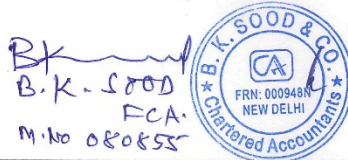 B. K. SOOD
FCA.
M. No 080855
B. K. SOOD & CO.
CA
FRN: 000948N
NEW DELHI
Chartered Accountants